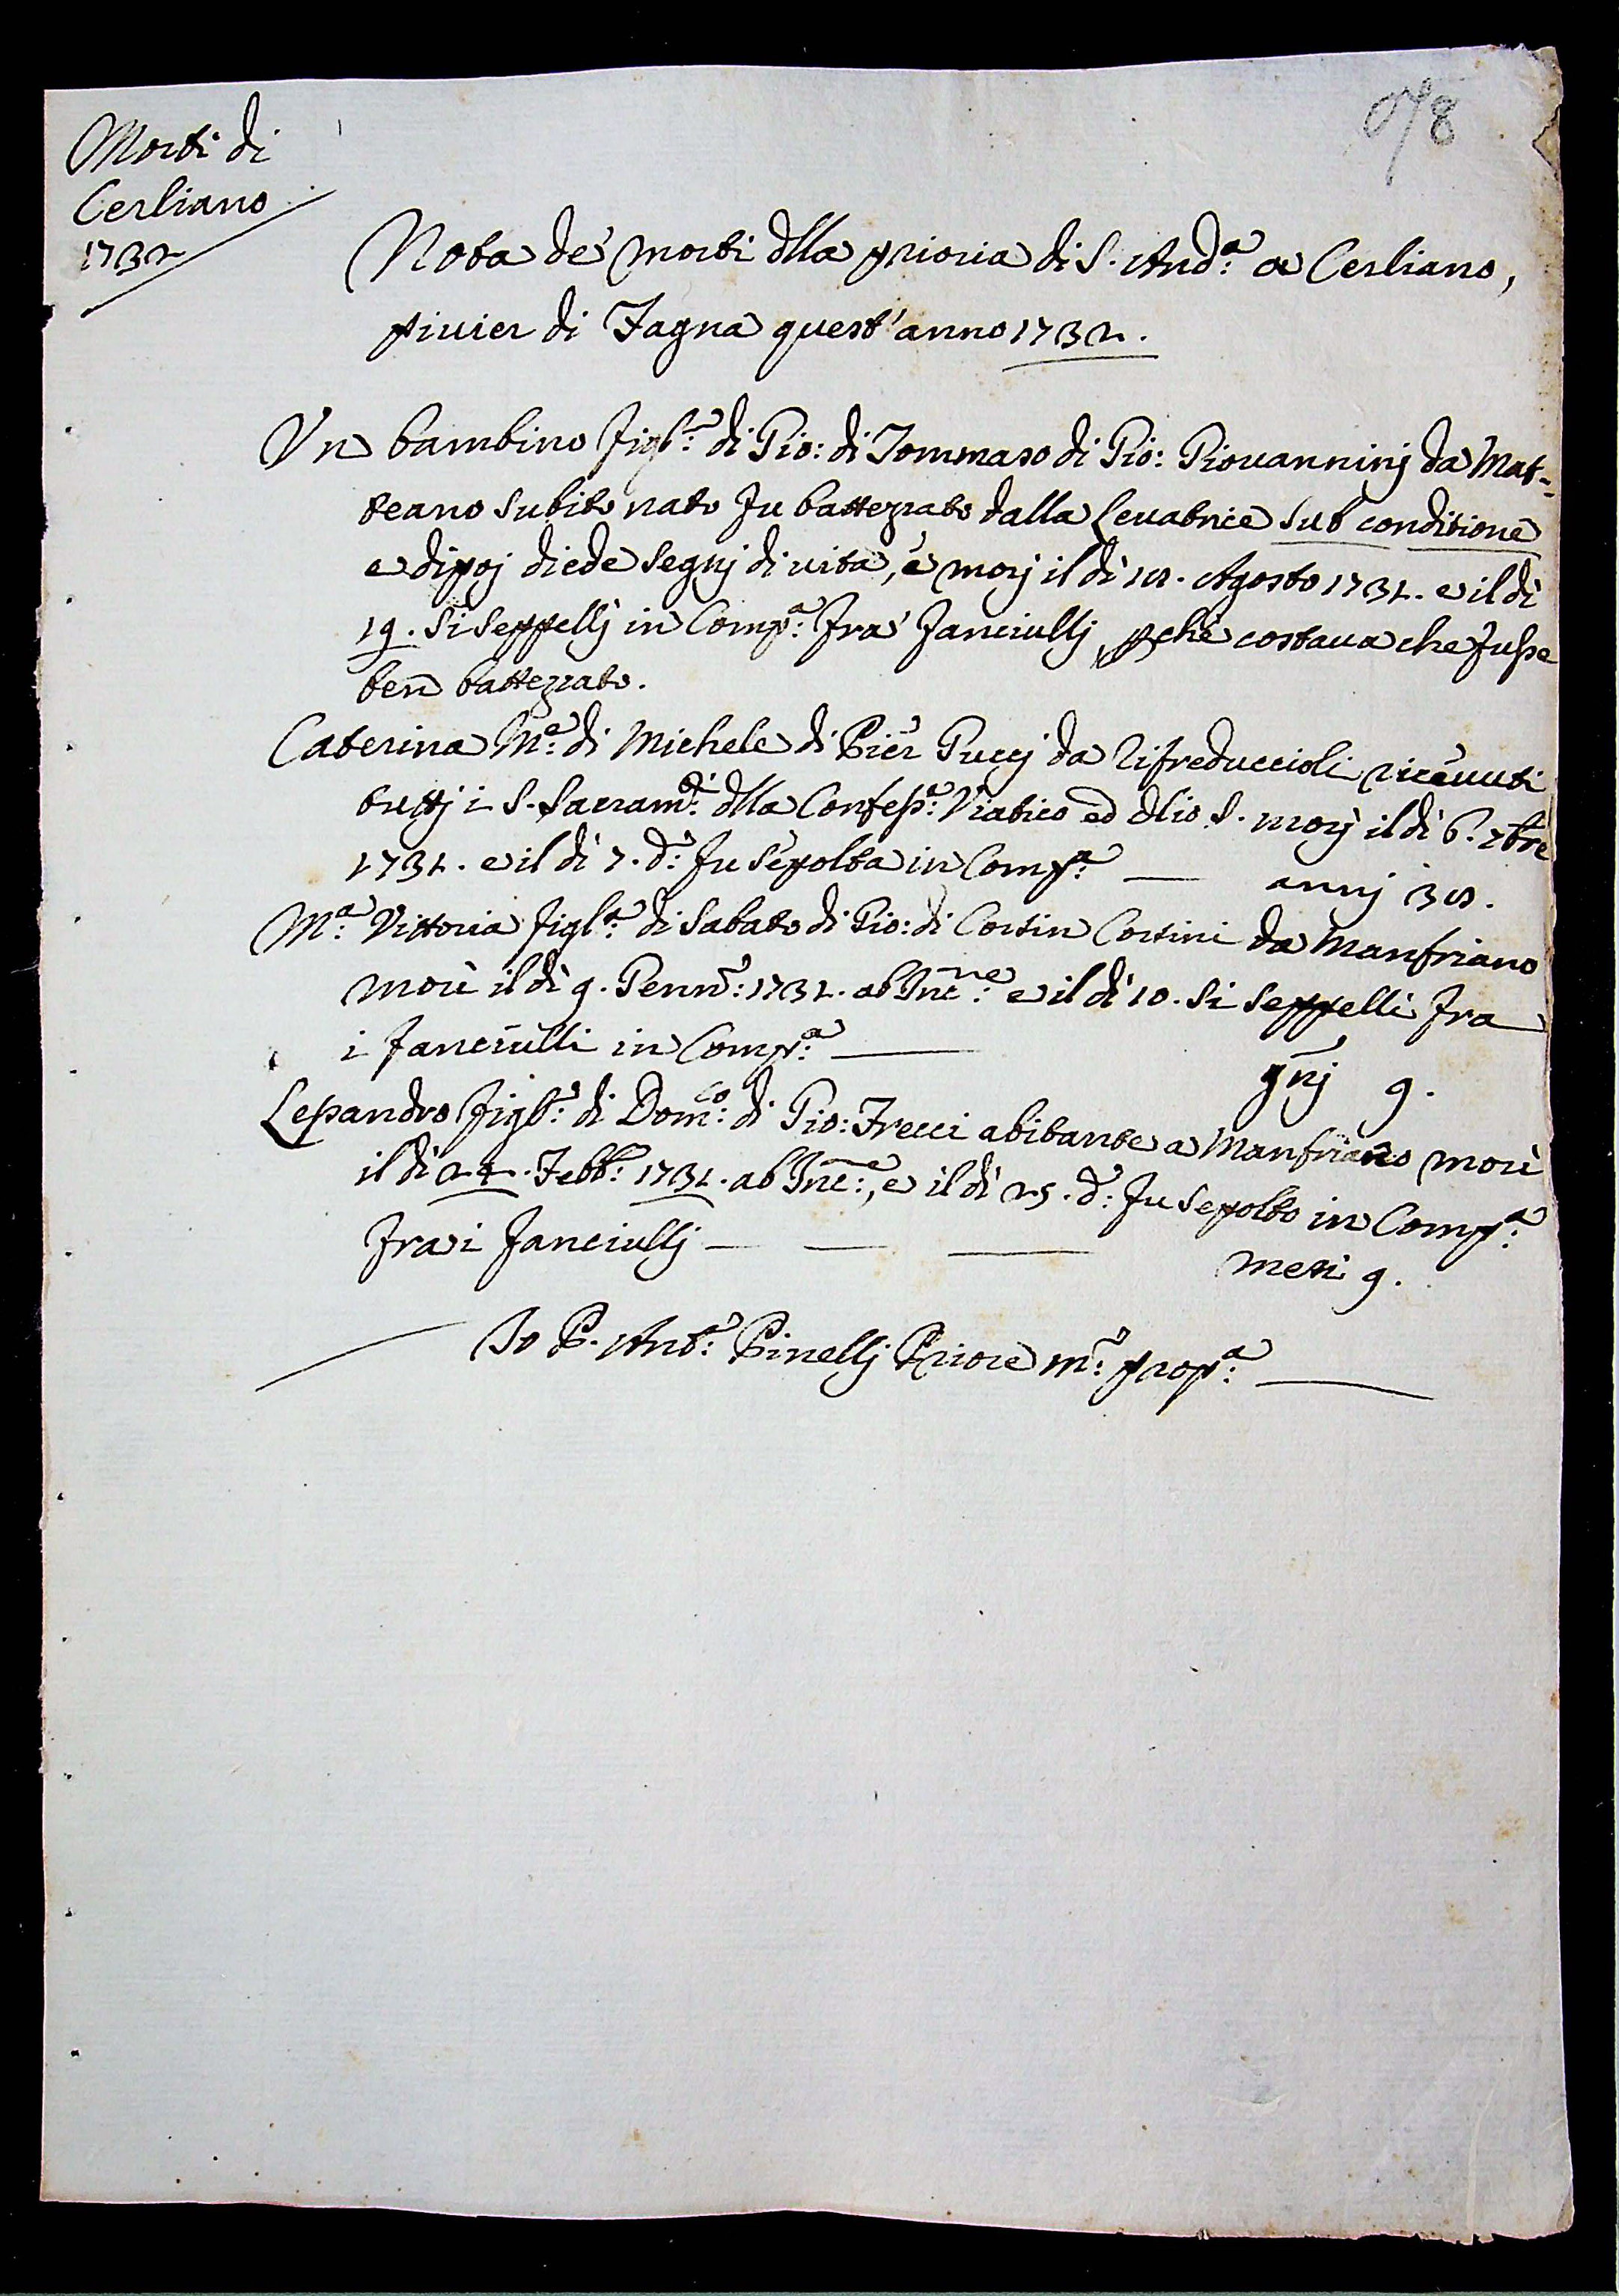 Morti di
Cerliano
1732
078
Nota de' morti dlla prioria di S. And.ª a Cerliano,
pivier di Fagna quest'anno 1732.
Un bambino figl.º di Gio: di Tommaso di Gio: Giovanninj da Mat-
teano subito nato fu battezzato dalla levatrice sub conditione
e dipoj diede segnj di vita, e morj il dì 18. Agosto 1731. e il dì
19. si seppellj in Comp.ª fra fanciullj, pchè costava che fusse
ben battezzato.
Caterina M.e di Michele di Pier Puccj da Rifreduccioli ricevuti
tuttj i S. Sacram.ti dlla Confess.e Viatico ed Olio S. morj il dì 6. 7bre
1731. e il dì 7. d.º fu sepolta in Comp.ª — annj 38.
M.ª Vittoria figl.ª di Sabato di Gio: di Cortin Cortini da Manfriano
morì il dì 9. Genn.º 1731. ab Inc.ne e il dì 10. si seppellì fra
i fanciulli in Comp.ª —
gnj 9.
Lessandro figl.º di Dom.co di Gio: Frecci abitante a Manfriano morì
il dì 24. Febb.º 1731. ab Inc.e, e il dì 25. d.º fu sepolto in Comp.ª
fra i fanciullj — — —
mesi 9.
Io P. Ant.º Pinellj Priore m.º prop.ª